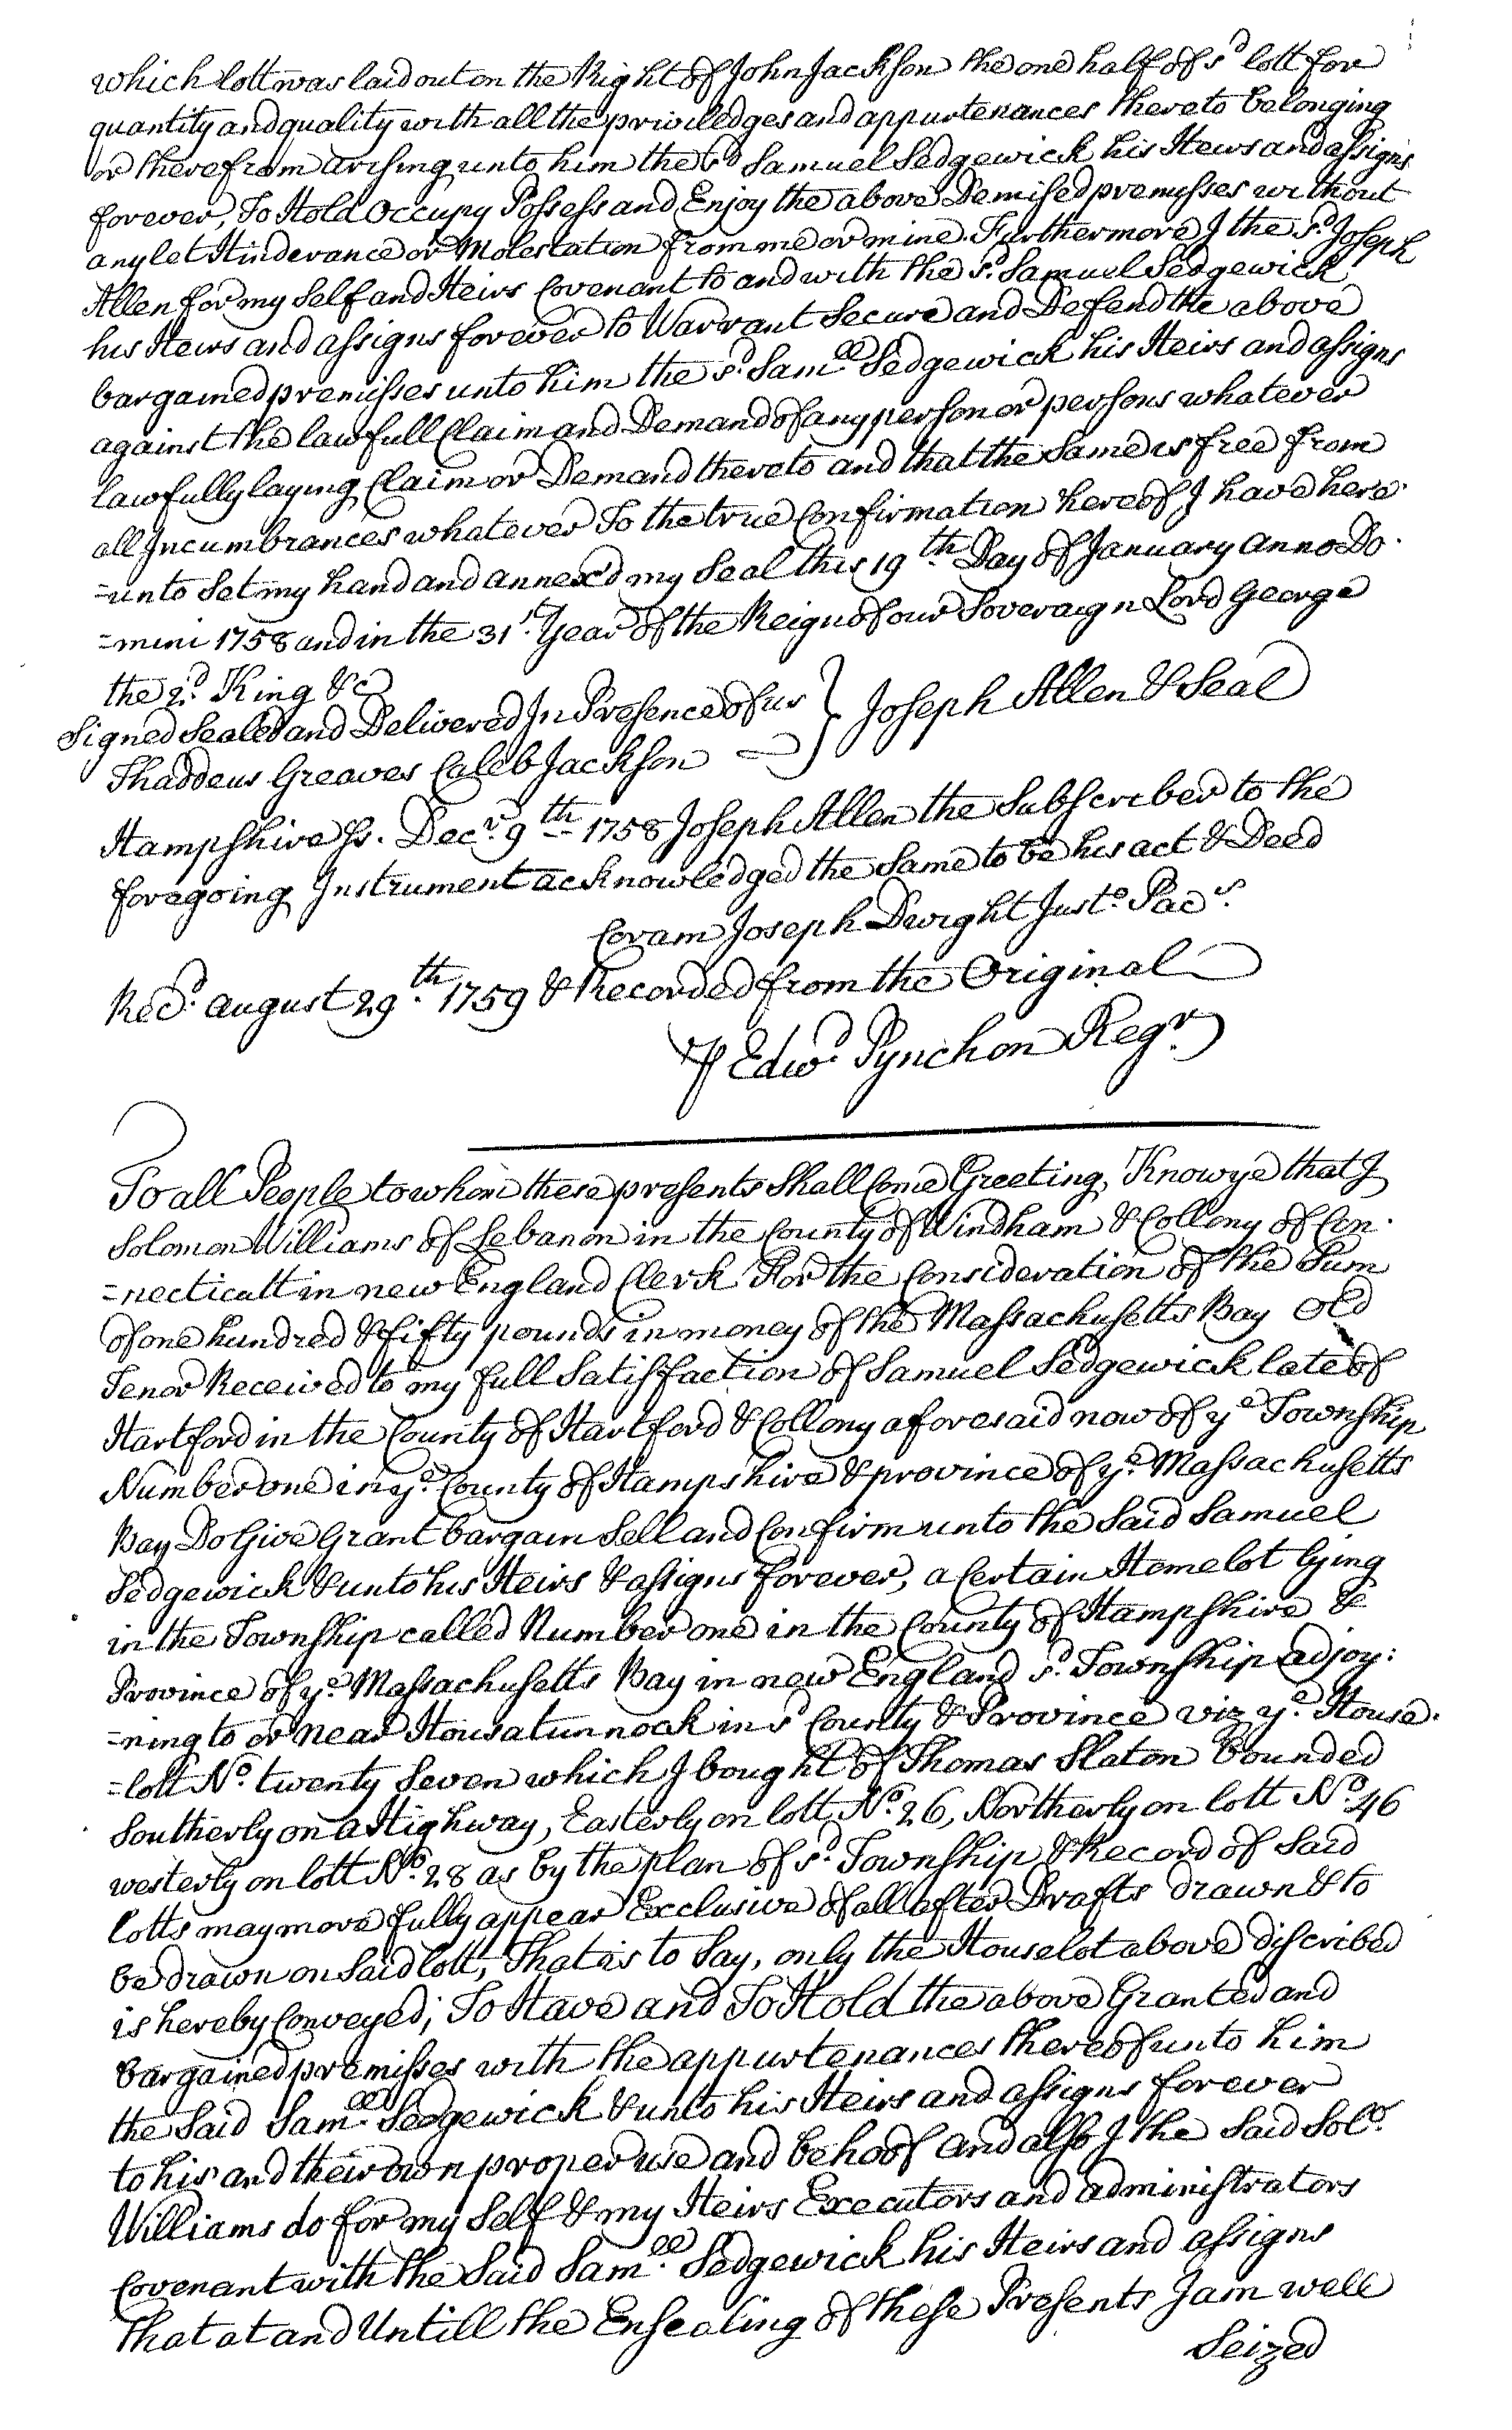 which lott was laid out on the Right of John Jackson the one half of sd lott for
quantity and quality with all the priviledges and appurtenances thereto belonging
or therefrom arising unto him the sd Samuel Sedgewick his Heirs and assigns
forever, To Hold Occupy Possess and Enjoy the above Demised premisses without
any let Hinderance or Molestation from me or mine. Furthermore I the sd. Joseph
Allen for my self and Heirs Covenant to and with the sd. Samuel Sedgewick
his Heirs and assigns forever to Warrant Secure and Defend the above
bargained premisses unto him the sd. Samll. Sedgewick his Heirs and assigns
against the lawfull Claim and Demand of any person or persons whatever
lawfully laying Claim or Demand thereto and that the same is free from
all Incumbrances whatever To the true Confirmation hereof I have here-
=unto set my hand and annex'd my seal this 19th. Day of January anno Do-
=mini 1758 and in the 31st. Year of the Reign of our Soveraign Lord George
the 2d. King &c
Signed Sealed and Delivered In Presence of us } Joseph Allen & Seal
Thaddeus Greaves Caleb Jackson
Hampshire Ss. Decr. 9th 1758 Joseph Allen the Subscriber to the
foregoing Instrument acknowledged the same to be his act & Deed
Coram Joseph Dwight Justo. Pacs.
Recd. august 29th. 1759 & Recorded from the Original
⅌ Edwd. Pynchon Regr.
To all People to whom these presents Shall Come Greeting, Know ye that I
Solomon Williams of Lebanon in the County of Windham & Collony of Con-
=necticutt in new England Clerk For the Consideration of the Sum
of one hundred & fifty pounds in money of the Massachusetts Bay Old
Tenor Received to my full Satisfaction of Samuel Sedgewick late of
Hartford in the County of Hartford & Collony aforesaid now of ye Township
Number one in ye. County of Hampshire & province of ye. Massachusetts
Bay Do Give Grant bargain Sell and Confirm unto the Said Samuel
Sedgewick & unto his Heirs & assigns forever, a Certain Homelot lying
in the Township called Number one in the County of Hampshire &
Province of ye. Massachusetts Bay in new England sd. Township adjoy:
=ning to or near Housatunnock in sd County & Province viz ye. House-
=lott No. twenty Seven which I bought of Thomas Slaton bounded
Southerly on a Highway, Easterly on lott No. 26, Northerly on lott No. 46
westerly on lott No. 28 as by the plan of sd. Township & Record of Said
Lotts may more fully appear Exclusive of all after Drafts drawn & to
be drawn on Said lott, That is to Say, only the Houselot above discribed
is hereby Conveyed; To Have and To Hold the above Granted and
bargained premisses with the appurtenances thereof unto him
the Said Samll. Sedgewick & unto his Heirs and assigns forever
to his and their own proper use and behoof and also I the Said Solo.
Williams do for my Self & my Heirs Executors and administrators
Covenant with the Said Samll. Sedgewick his Heirs and assigns
That at and Untill the Ensealing of these Presents I am well
Seized